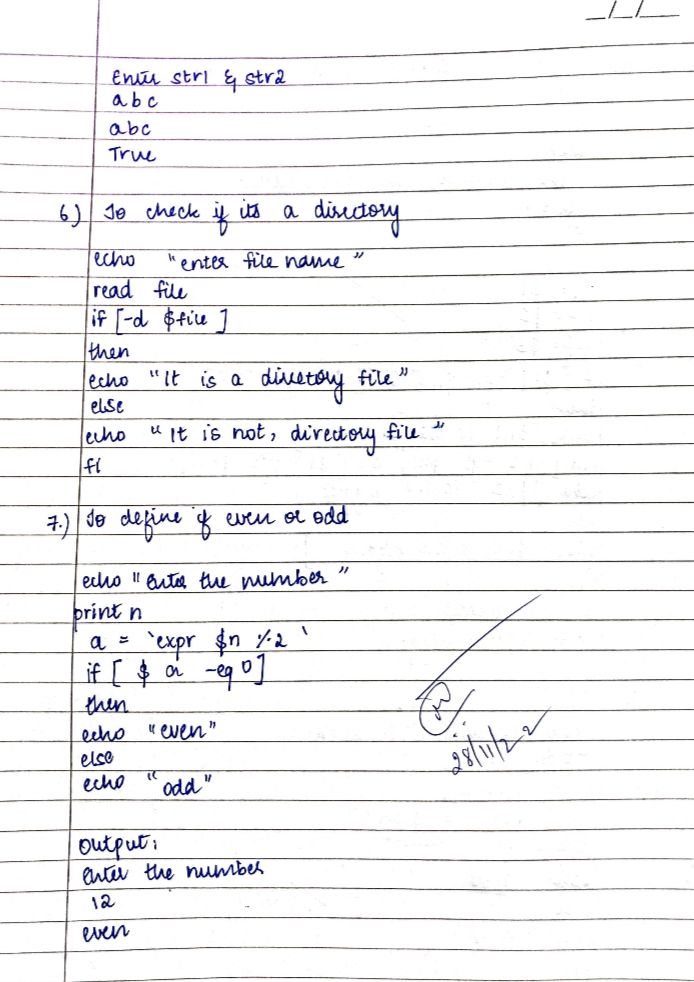 _/_/_
Enter str1 & str2
abc
abc
True
6) To check if its a directory
echo "enter file name"
read file
if [-d $file ]
then
echo "It is a directory file"
else
echo "It is not, directory file"
fi
7.) To define if even or odd
echo "Enter the number"
print n
a = `expr $n % 2 `
if [ $ a -eq 0]
then
echo "even"
else
echo "odd"
28/11/22
Output:
Enter the number
12
even